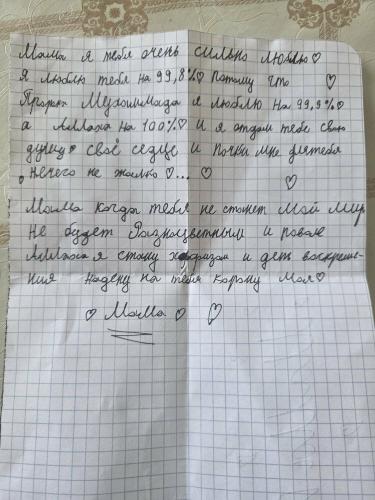 Мама я тебя очень сильно люблю♡
я люблю тебя на 99,8%♡ потому что ♡
Прока Мухаммада я люблю на 99,9%♡
а Аллаха на 100%♡ и я отдам тебе свою
душу, своё седце и почки мне длятебя
нечего не жалко♡... ♡
♡
Мама когда тебя не станет мой мир
не будет Разноцветным и
Аллаха я стану хафизом и день воскреше-
ния надену на тебя карону Мол♡
♡ Мама ♡ ♡